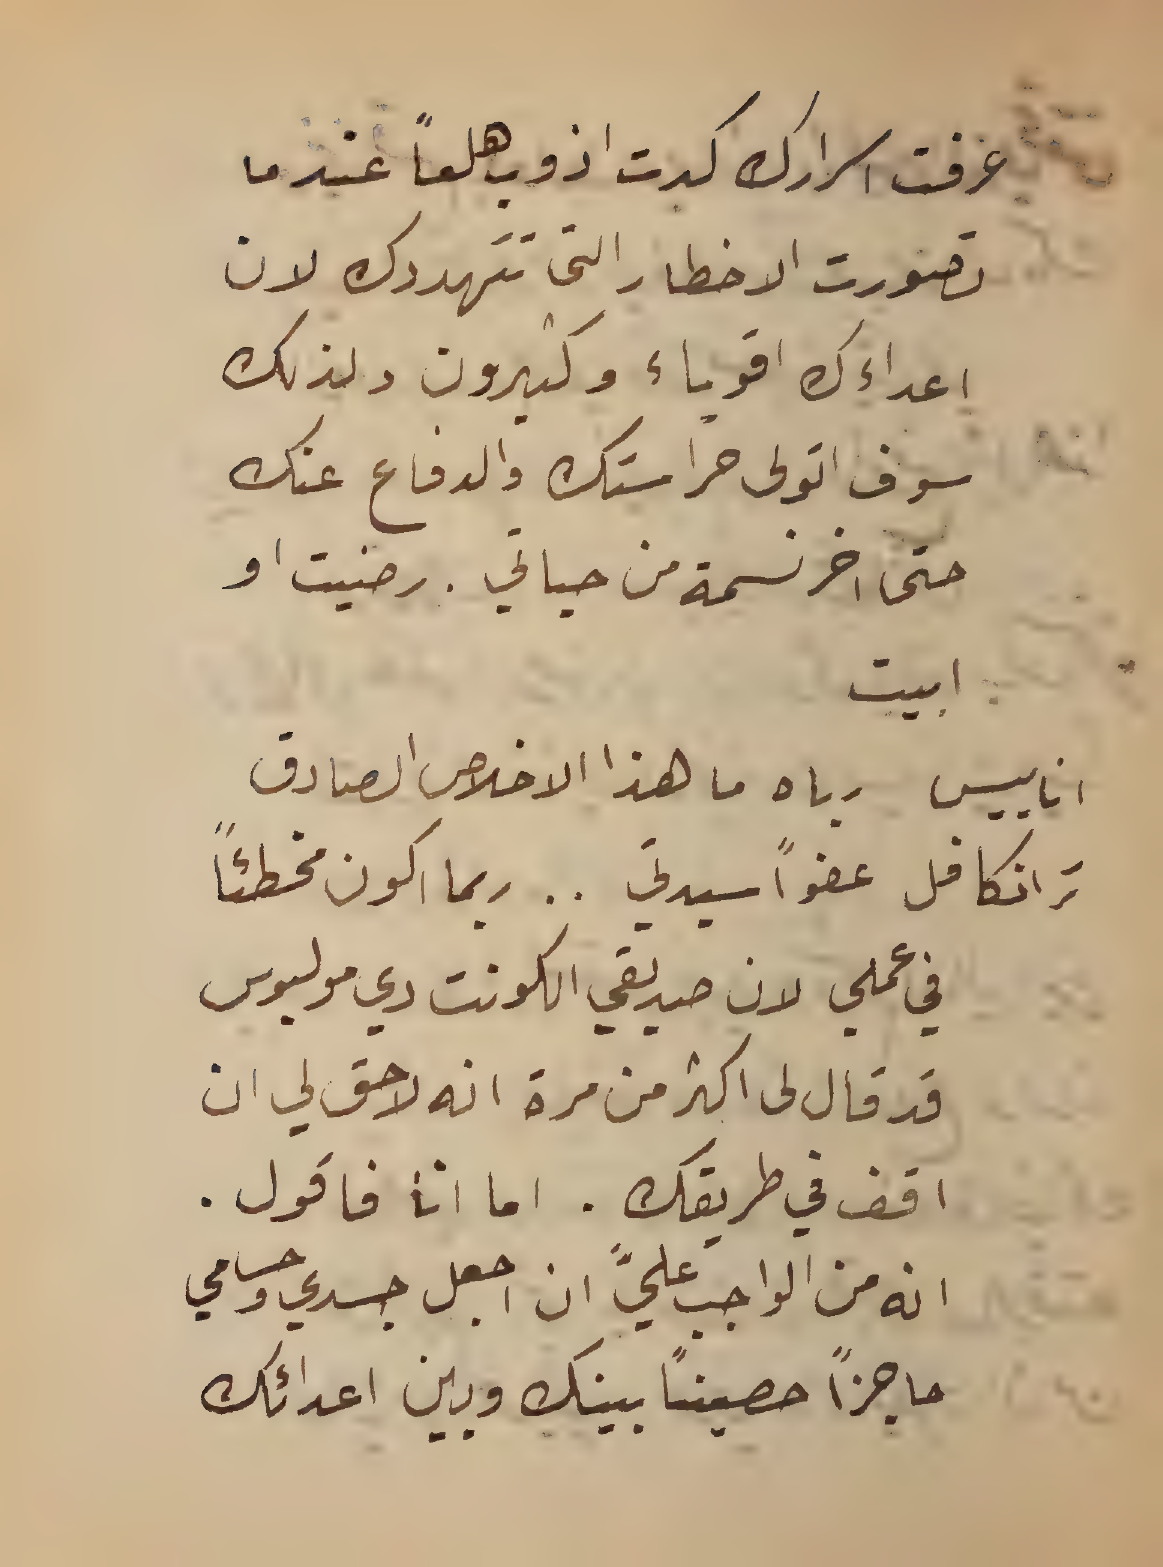 عرفت اسرارك كدت اذوب هلعاً عندما
تصورت الاخطار التي تتهددك لان
اعداءك اقوياء وكثيرون ولذلك
سوف اتولى حراستك والدفاع عنك
حتى اخر نسمة من حياتي . رضيت او
ابيت
اناييس رباه ما هذا الاخلاص الصادق
ترانكافل عفواً سيدتي .. ربما اكون مخطئاً
في عملي لان صديقي الكونت دي مولبوس
قد قال لى اكثر من مرة انه لا حق لي ان
اقف في طريقك . اما انا فاقول .
انه من الواجب عليّ ان اجعل جسدي وحسامي
حاجزاً حصيناً بينك وبين اعدائك